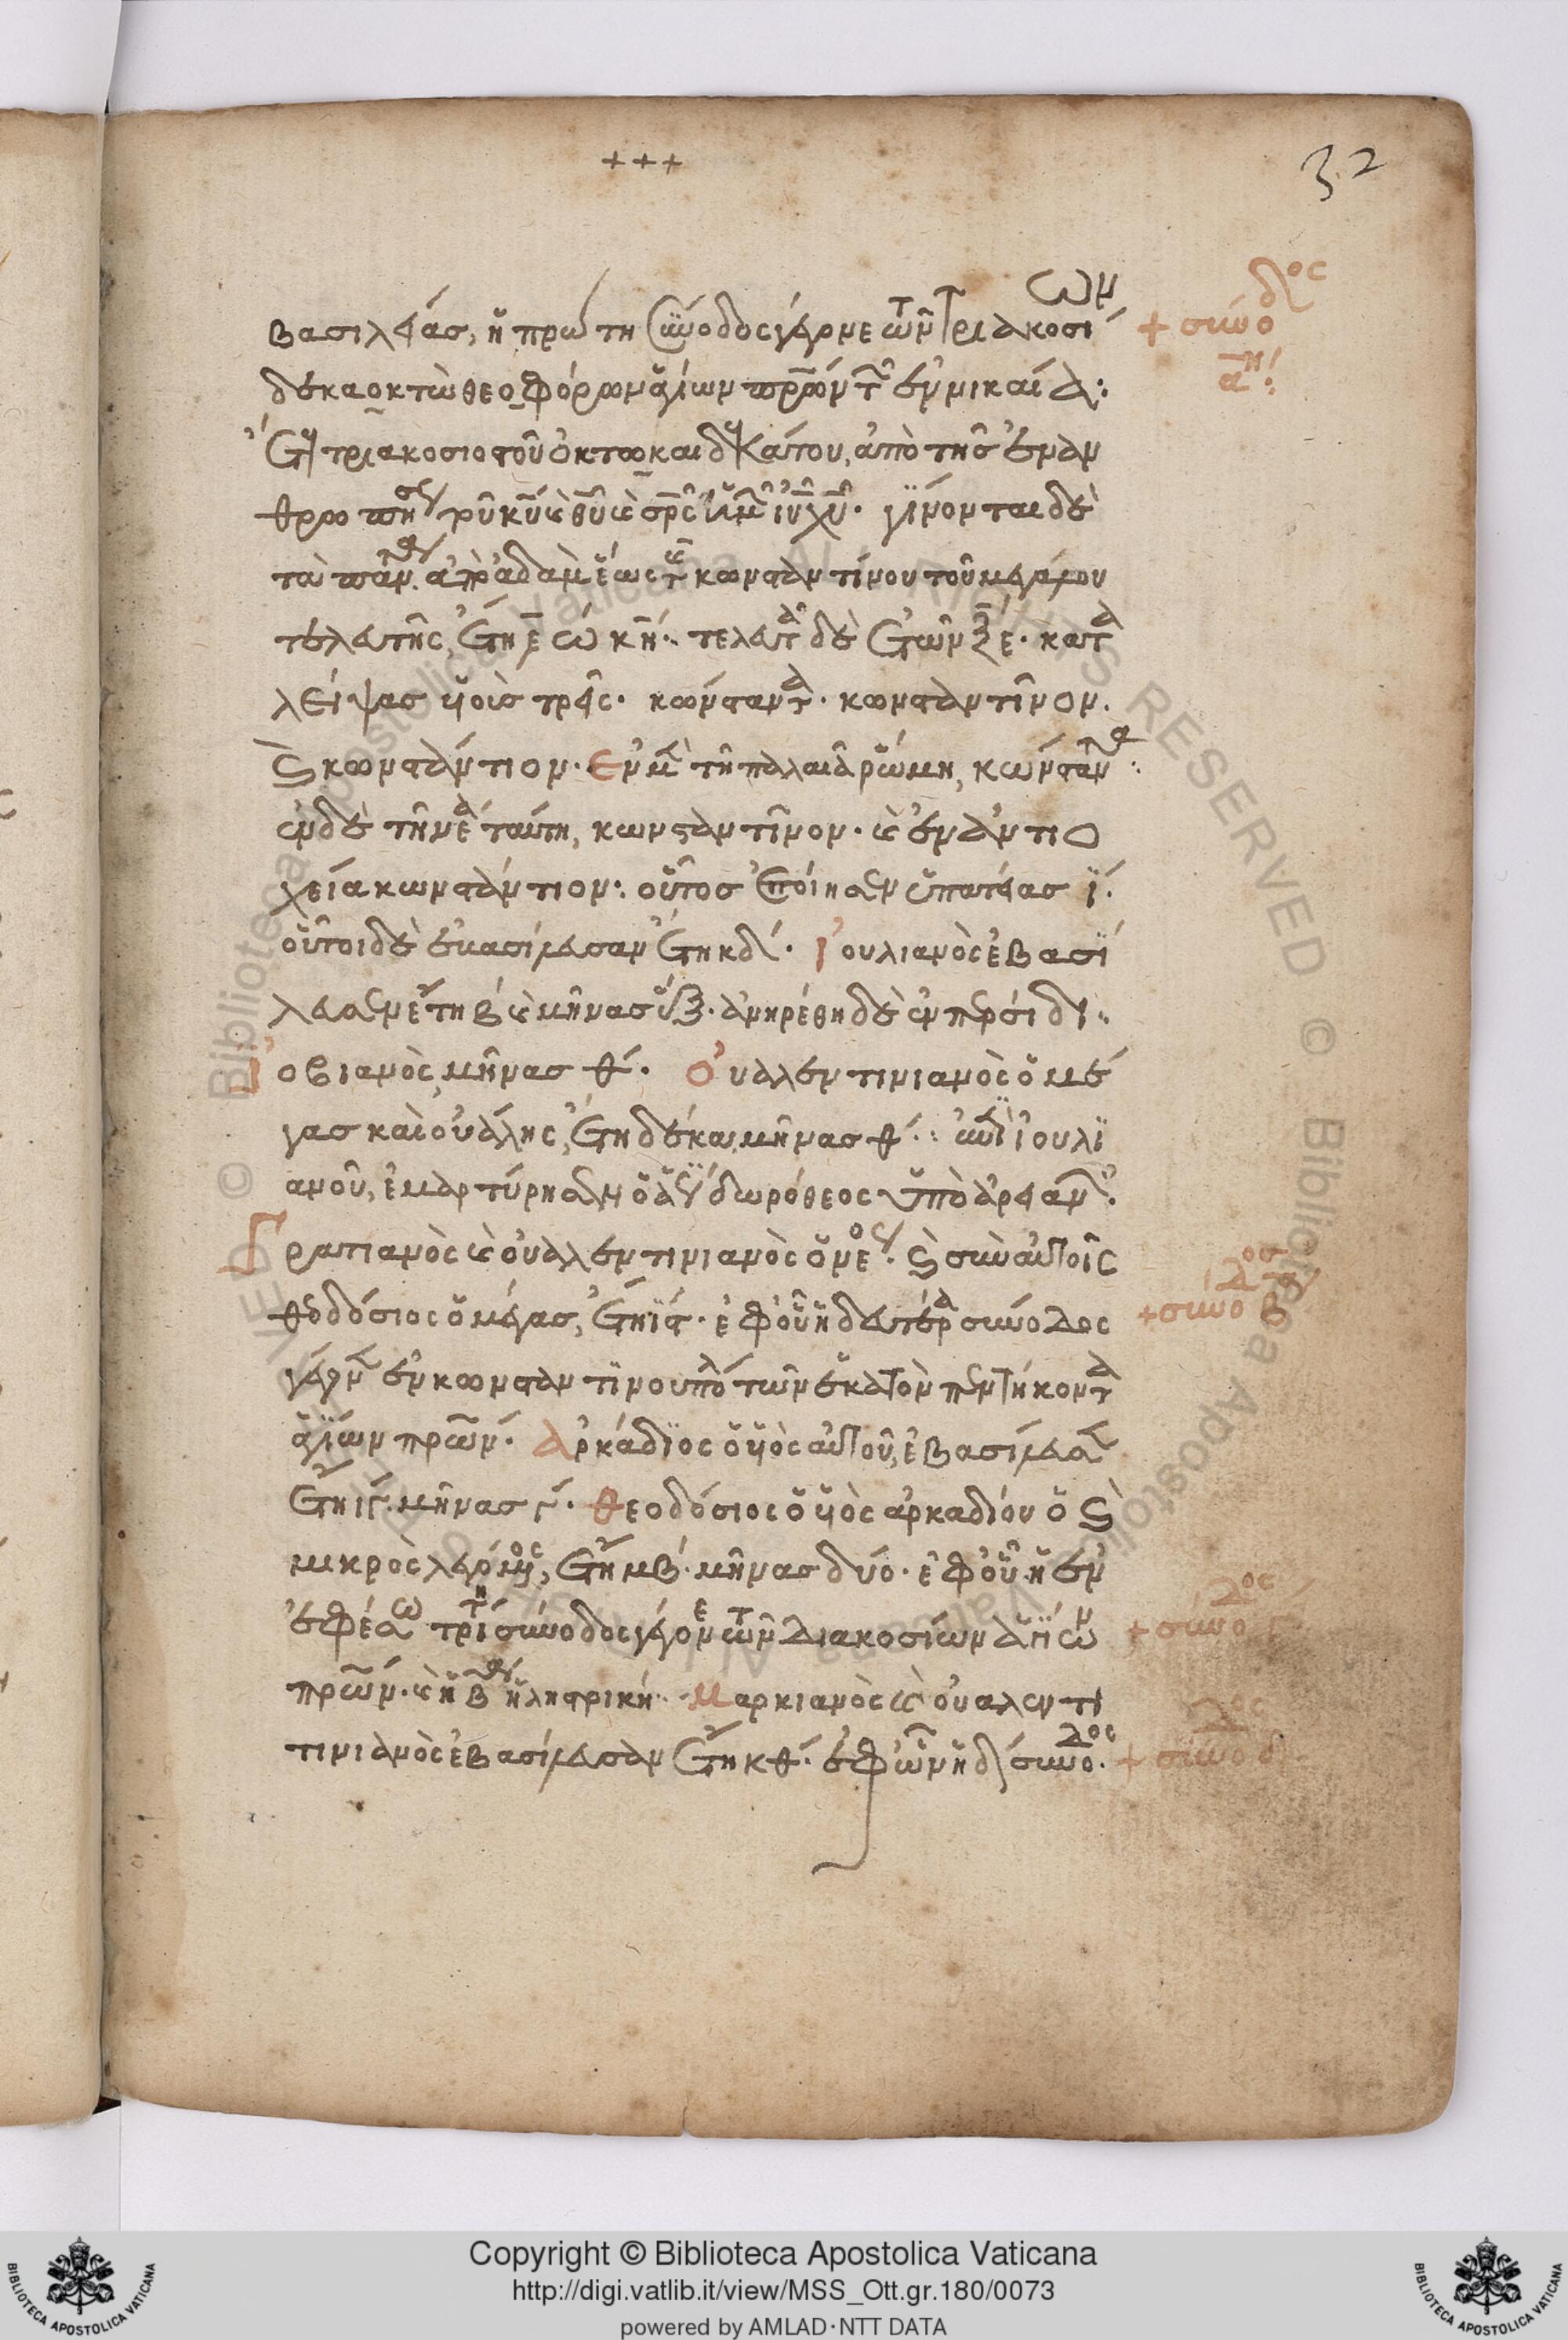 +++
32
βασιλείας, ἡ πρώτη σύνοδος γέγονε τῶν τριακοσίων
+ σύνοδος
α´ η:
δέκα ὀκτὼ θεοφόρων ἁγίων πρων ἐν νικαία:
Ἔτη τριακοσιοστοῦ ὀκτωκαιδεκάτου, ἀπὸ τῆς ἐναν
θρωπήσεως τοῦ κυ καὶ θυ καὶ σρς ἡμῶν ιυ χυ. γίνονται δὲ
τὰ πάντα ἀπὸ ἀδὰμ ἕως τῆς κωνσταντίνου τοῦ μεγάλου
τελευτῆς, ἔτη ε ω κη. τελευτᾶ δὲ ἐτῶν ξε. κατα
λείψας υἱοὺς τρεῖς. κώνσταντα. κωνσταντῖνον.
καὶ κωνστάντιον. ἐν μὲν τῆ παλαιᾶ ῥώμη, κώνσταντα:
ἐν δὲ τῆ νέα ταύτη, κωνσταντῖνον. καὶ ἐν ἀντιο
χεία κωνστάντιον: οὗτος ἐποίησεν ὑπατείας ι.
οὗτοι δὲ ἐβασίλευσαν ἔτη κδ. Ἰουλιανὸς ἐβασί
λευσεν ἔτη β καὶ μῆνας ἀνηρέθη δὲ ἐν περσίδι:
Ἰοβιανὸς, μῆνας θ. Οὐαλεντινιανὸς ὁ μέ
γας καὶ οὐάλης, ἔτη δέκα, μῆνας θ: ἐπὶ ἰουλι
ανοῦ, ἐμαρτύρησεν ὁ ἅγιος δωρόθεος ὑπὸ ἀρειανῶν.
Γρατιανὸς καὶ οὐαλεντινιανὸς ὁ νέος. καὶ σὺν αὐτοῖς
θεοδόσιος ὁ μέγας, ἔτη ις. ἐφ οὗ ἡ δευτέρα σύνοδος
+ σύνοδος β
γέγονεν ἐν κωνσταντινουπόλει τῶν ἑκατὸν πεντήκοντα
ἁγίων πρων. Ἀρκάδιος ὁ υἱὸς αὐτοῦ, ἐβασίλευσεν
ἔτη ιγ. μῆνας γ. Θεοδόσιος ὁ υἱὸς ἀρκαδίου ὁ καὶ
μικρὸς λεγόμενος, ἔτη μβ. μῆνας δύο. ἐφ οὗ ἡ ἐν
ἐφέσω τρίτη σύνοδος γέγονε τῶν διακοσίων ἁγίων
+ σύνοδος γ
πρων. καὶ ἡ β ἡ ληστρικὴ. Μαρκιανὸς καὶ οὐαλεντι
τινιανὸς ἐβασίλευσαν ἔτη κθ. ἐφ ὧν ἡ δ σύνοδος.
+ σύνοδος δ
Copyright © Biblioteca Apostolica Vaticana
http://digi.vatlib.it/view/MSS_Ott.gr.180/0073
powered by AMLAD·NTT DATA
BIBLIOTECA APOSTOLICA VATICANA
BIBLIOTECA APOSTOLICA VATICANA